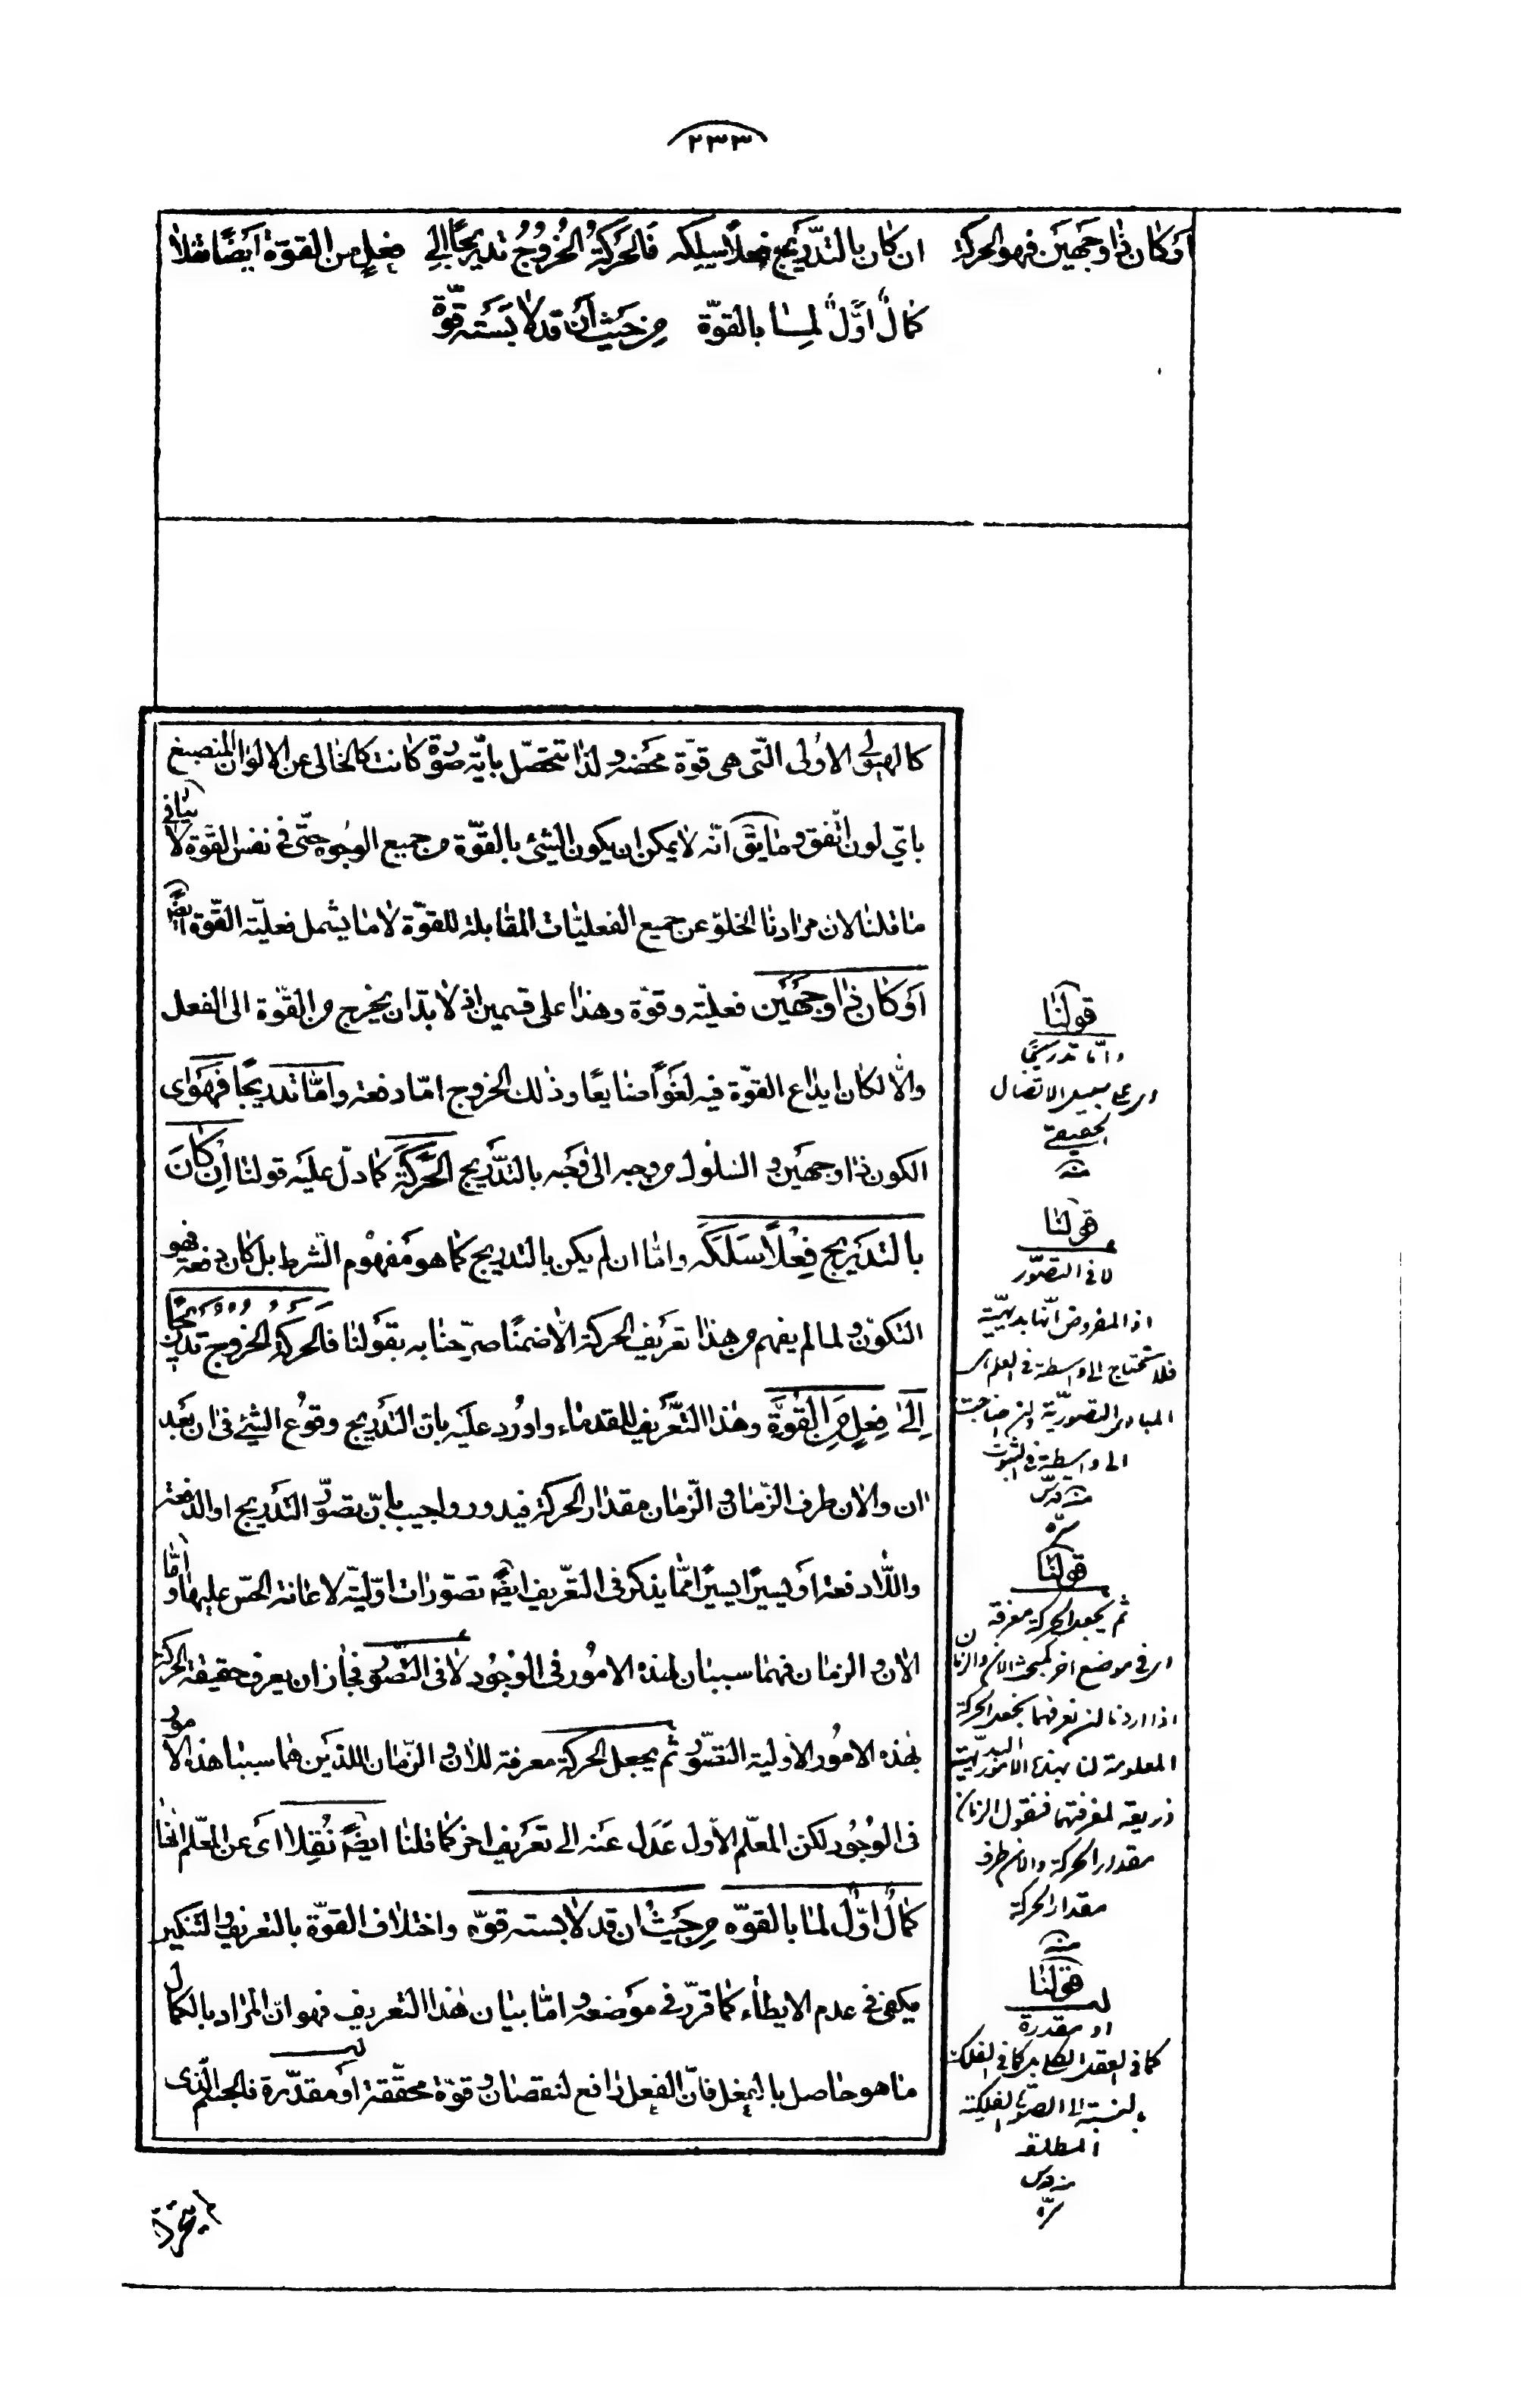 ٢٣٣
اَو كٰان ذٰا وجهَين فهو الحركة ان كان بالتّدريج فعلاً سلكه فَالحَرَكَةُ الخُروُجُ تدريجًا اِلى فعلٍ من القوّة اَيضًا نقلاٰ
كمٰالٌ اوَّلٌ لمِٰا بالقوّة مِن حَيث اَن قد لاٰبَسَته قوّة
كالهيولى الاُولى الّتى هى قوّة محَضة ولذٰا تتحصّل بايّة صورة كانت كالخٰالى عن الالوٰان المنصبغ
باىّ لون اتّفق ومٰا يقٰ انّه لاٰ يمكن ان يكون الشئ بالقوّة من جميع الوجوه حتّى فى نفس القوّة لاٰ ينٰافى
مٰا قلنٰا لان مرٰادنٰا الخلوّ عن جميع الفعليّات المقابلة للقوّة لاٰ مٰا يشمل فعليّة القوّة ايضًا
اَو كٰان ذٰا وجهَين فعليّة وقوّة وهذٰا على قسمين اذ لاٰ بدّ ان يخرج من القوّة الى الفعل
والّا لكٰان ايدٰاع القوّة فيه لغوًا ضٰايعًا وذٰلك الخروج امّا دفعة وامّٰا تدريجًا فهَو اى
الكون ذٰا وجهَين والسّلوك من وجه الىٰ وَجه بالتّدَريج الحَركَة كمٰا دلّ علَيه قولنٰا اِن كٰانَ
بالتّدَريج فِعْلاً سَلَكَه وامّٰا ان لم يكن بالتدريج كمٰا هو مَفهوْم الشرط بل كٰان دفعة فهو
التكوّن ولمٰا لم يفهم من هذٰا تعرَيف الحركة الّا ضمنًا صرّحنٰا به بقَولنٰا فالحركة الخروج تدريجًا
اِلىٰ فِعلٍ مِنَ القُوَّة وهٰذٰا التّعَريف للقدمٰاء واوُرد علَيه بان التّدَريج وقوُع الشئ فى ان بَعَد
ان والان طرف الزّمٰان والزّمٰان مقدٰار الحركة فيدور واجيب بانّ تصوّر التّدَريج او الدّفعة
واللّٰادفعة اَو يسيرًا يسيرًا ممّٰا يذكر فى التعّريف ايضًا تصوّرات اوّليّة لاعٰانة الحسّ عليهٰا وامّٰا
الان والزمٰان فهمٰا سببٰان لهذه الامُور فى الوُجوُد لاٰ فى التّصّوّر فجٰاز ان يعرف حقيقة الحركة
بهٰذه الامُور الاَولية التصّوّر ثم يجعل الحركة معرفة للاٰن والزّمٰان اللذَين همٰا سببٰا هذه الاٰمور
فى الوُجوُد لكن المعلّم الاّول عَدَل عَنه الى تعَريف اخر كمٰا قلنٰا ايضًا نُقِلا اى عن المعّلم انّهٰا
كمٰالٌ اوّلٌ لمٰا بالقوّه مِن حَيثُ ان قد لاٰبسته قوّه واختلاٰف القوّة بالتعريف والتّنكير
يكفى فى عدم الايطٰاء كمٰا قرّر فى موَضعه وامّٰا بيٰان هٰذا التعريف فهو انّ المرٰاد بالكمٰال
مٰا هو حٰاصل بالفعل فانّ الفعل رٰافع لنقصٰان وقوّة محقّقة اَو مقدّرة فالجسم الّذى
قولنٰا
وامّا تدريجًا
اى على سبيل الاتصال
الحقيقى
منه
قولنٰا
لا فى التصوّر
اذ المفروض انّها بديهيّة
فلا تحتاج الى واسطة فى العلم اى
المبادى التصوريّة وان احتاجت
الى واسطة فى الثبوت
منه قدّس
سرّه
قولنٰا
ثم يجعل الحركة معرفة
اى فى موضع اخر كمبحث الان والزمان
اذا اردنا ان نعرفهما نجعل الحركة
المعلومة لنا بهذه الامور البديهيّة
ذريعة لمعرفتهما فنقول الزمان
مقدار الحركة والان طرف
مقدار الحركة
منه
قولنٰا
او مقدرة
كما فى العقل الكلى بل كما فى الفلك
بالنسبة الى الصورة الفلكية
المطلقة
منه قدس
سرّه